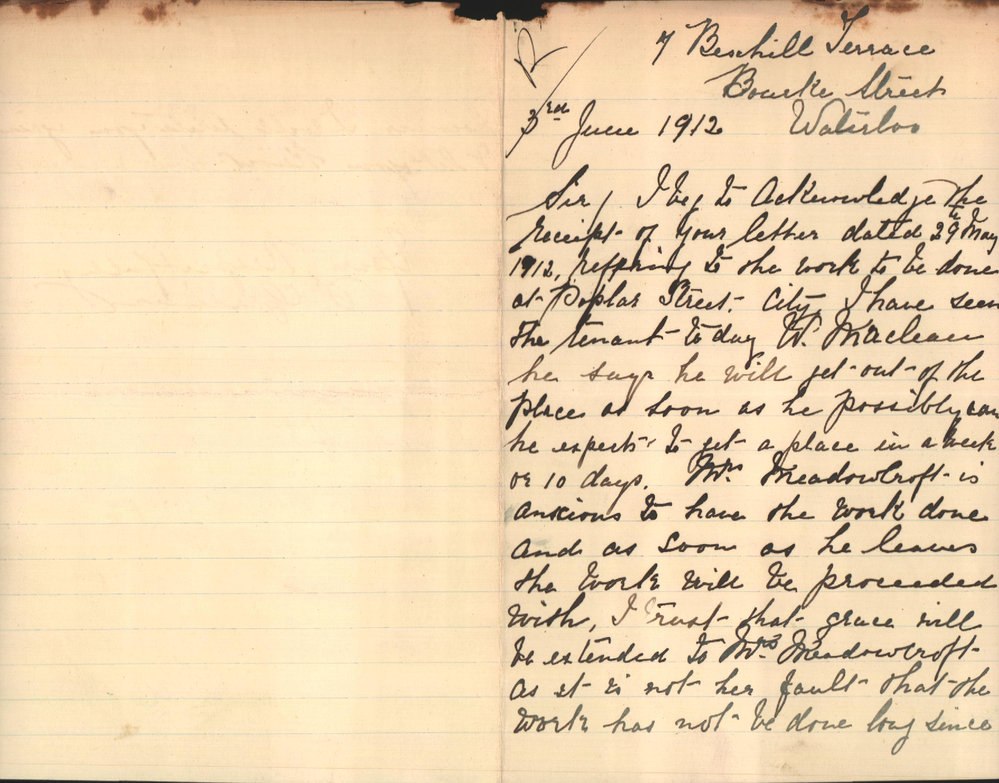 7 Bexhill Terrace
Bourke Street
3rd June 1912 Waterloo
Sir/ I beg to Acknowledge the
receipt of your letter dated 29th May
1912, reffering to the work to be done
at Poplar Street. City, I have seen
the tenant to day W. Maclean
he says he will get out of the
place as soon as he possibly can
he expects to get a place in a week
or 10 days. Mrs. Meadowcroft is
anxious to have the work done
and as soon as he leaves
the work will be proceeded
with, I trust that grace will
be extended to Mrs. Meadowcroft
as it is not her fault that the
work has not be done long since